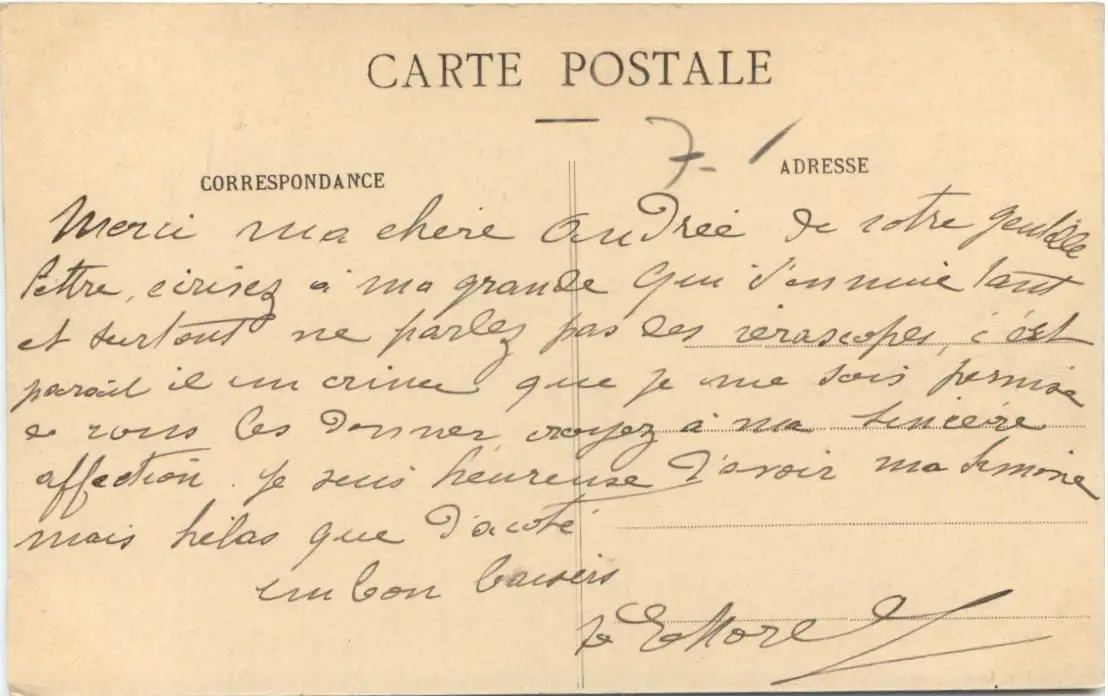 CARTE POSTALE
7-
ADRESSE
CORRESPONDANCE
Merci ma chère Andrée de votre gentille
lettre, ecrivez à ma grande qui s'ennuie tant
et surtout ne parlez pas des verascopes, c'est
parait il un crime que je me sois permise
de vous les donner, croyez à ma sincère
affection. Je suis heureuse d'avoir ma Simone
mais hélas que d'acoté
un bon baisers